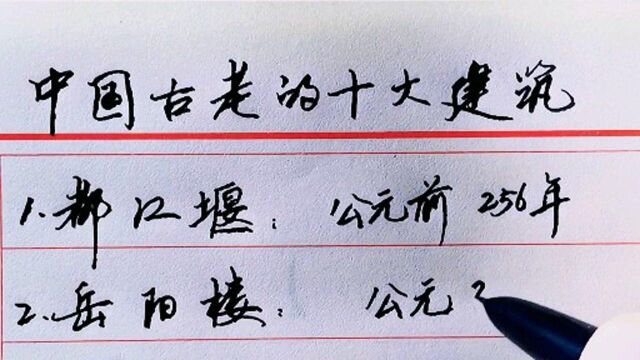 中国古老的十大建筑
1.都江堰：公元前256年
2.岳阳楼：公元